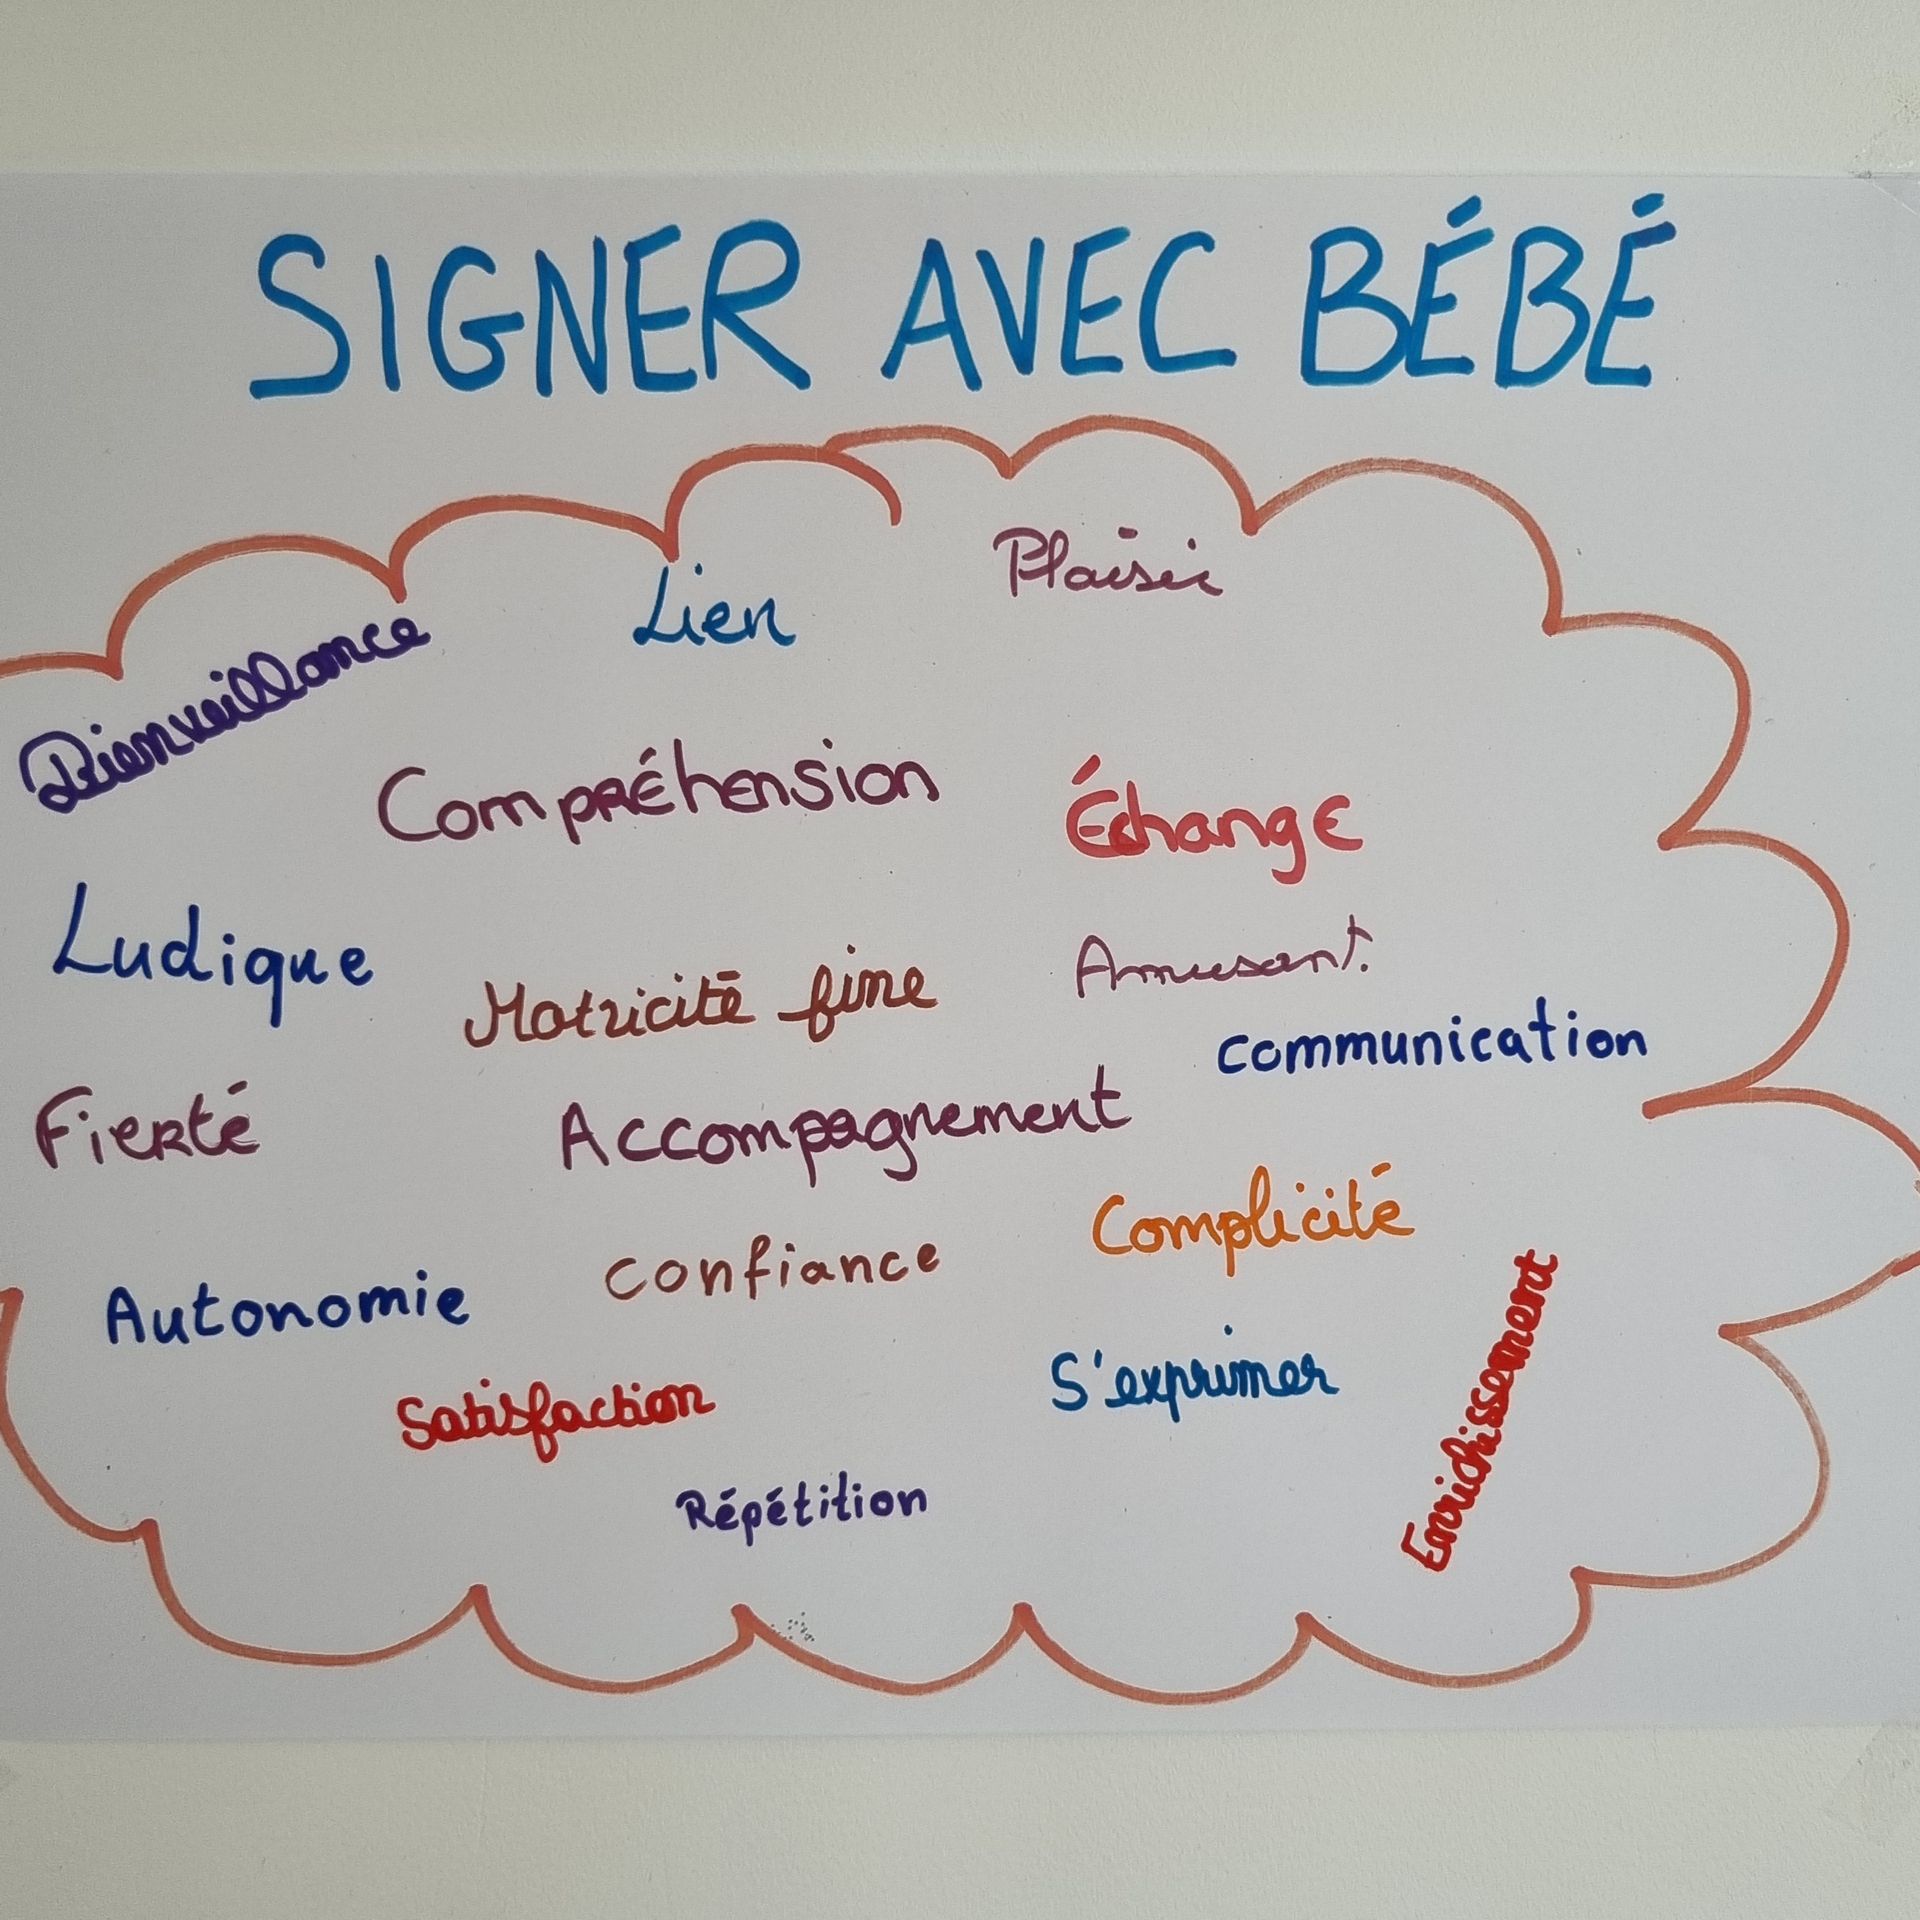 SIGNER AVEC BÉBÉ
Plaisir
Lien
Bienveillance
Compréhension
Échange
Ludique
Motricité fine
Amusant.
communication
Fierté
Accompagnement
Complicité
Autonomie
confiance
S'exprimer
Enrichissement
Satisfaction
Répétition